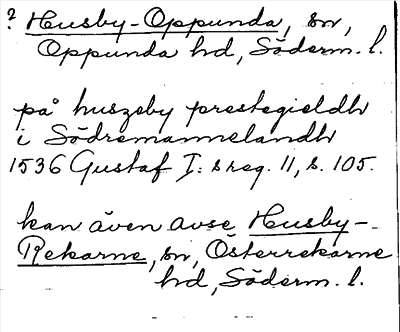 ? Husby-Oppunda, sn,
Oppunda hd, Söderm. l.
på huszeby prestegieldh
i Södremannelandh
1536 Gustaf I: s reg. 11, s. 105.
kan även avse Husby-
Rekarne, sn, Österrekarne
hd, Söderm. l.